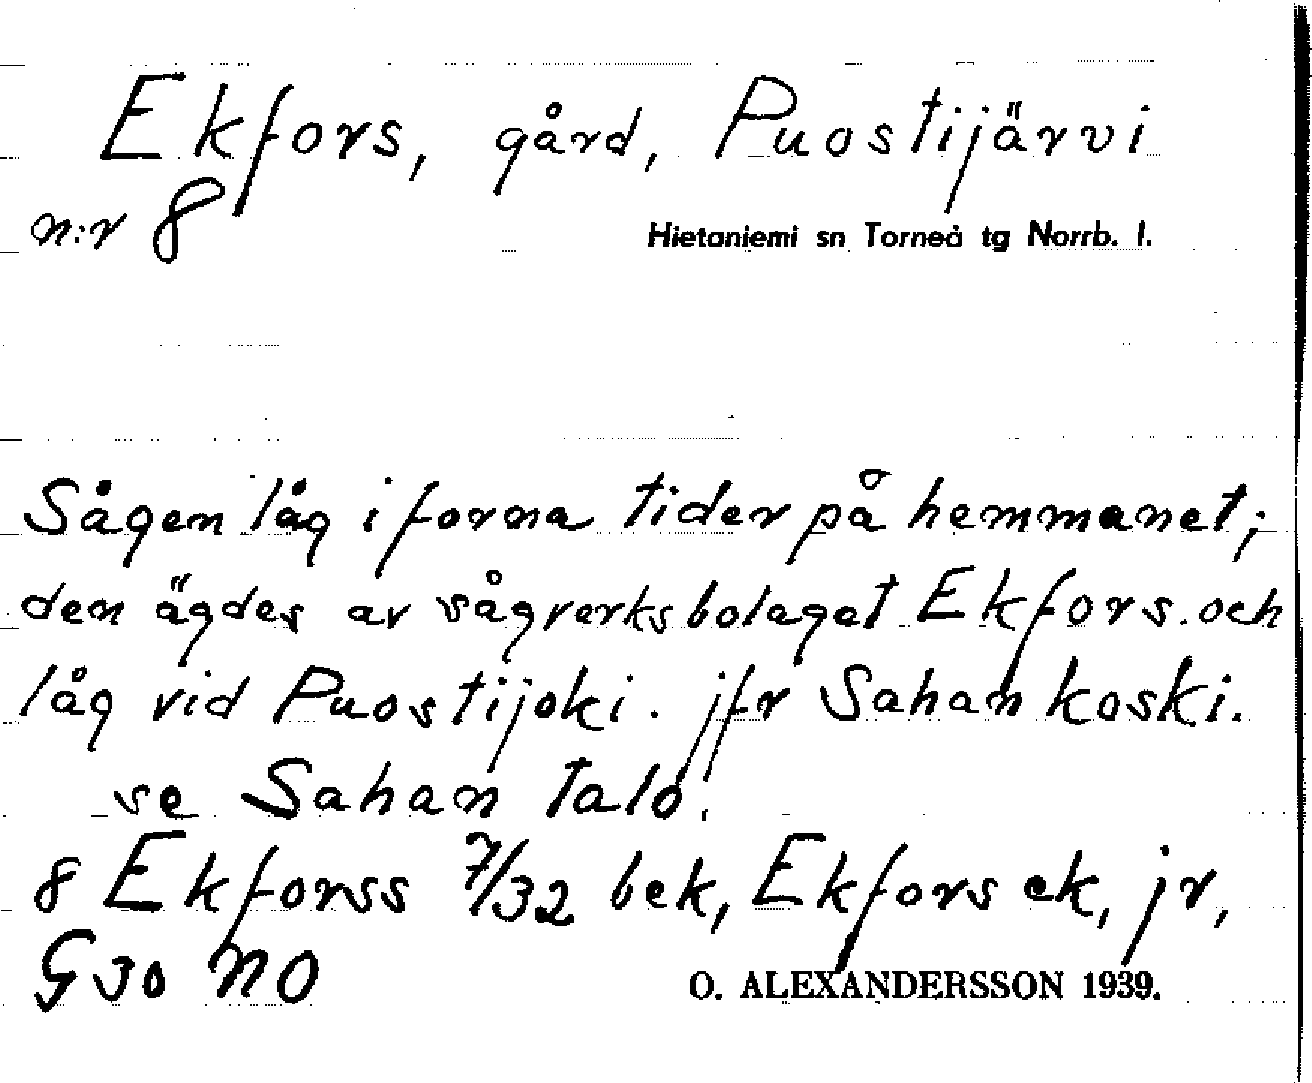 Ekfors, gård, Puostijärvi
n:r 8
Hietaniemi sn Torneå tg Norrb. l.
Sågen låg i forna tider på hemmanet;
den ägdes av sågverksbolaget Ekfors. och
låg vid Puostijoki. jfr Sahankoski.
se Sahan talo.
8 Ekforss 7/32 bek, Ekfors ek, jr,
G30 NO
O. ALEXANDERSSON 1939.